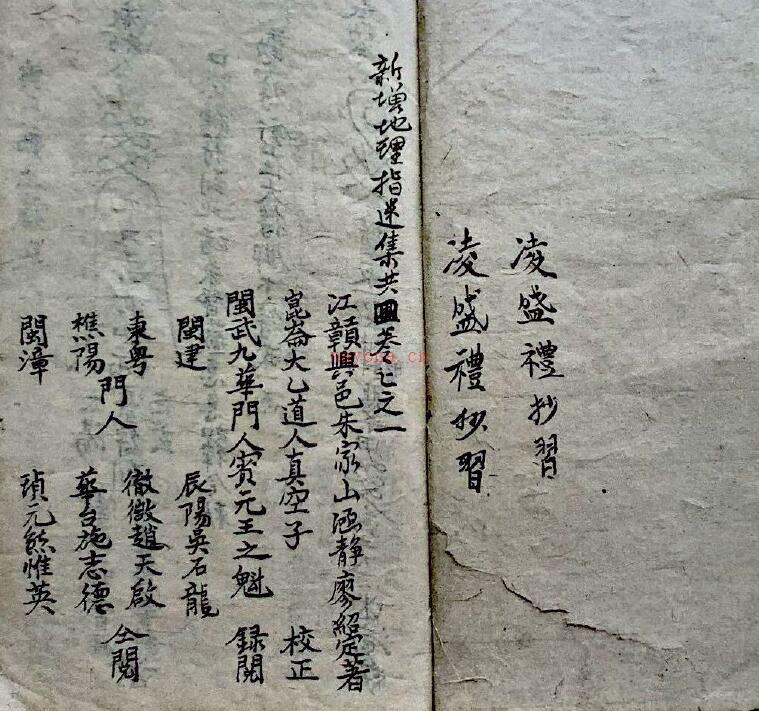 凌盛禮抄習
凌盛禮抄習
新增地理指迷集共圖卷七之一
江贛興邑朱家山涵靜廖紹定著
崑崙大乙道人真空子 校正
閩武九華門人賓元王之魁 録閱
閩建 辰陽吳石龍
東粤 徹微趙天啟
門人 仝閱
樵陽 華台施志德
閩漳 瑱元熊惟英